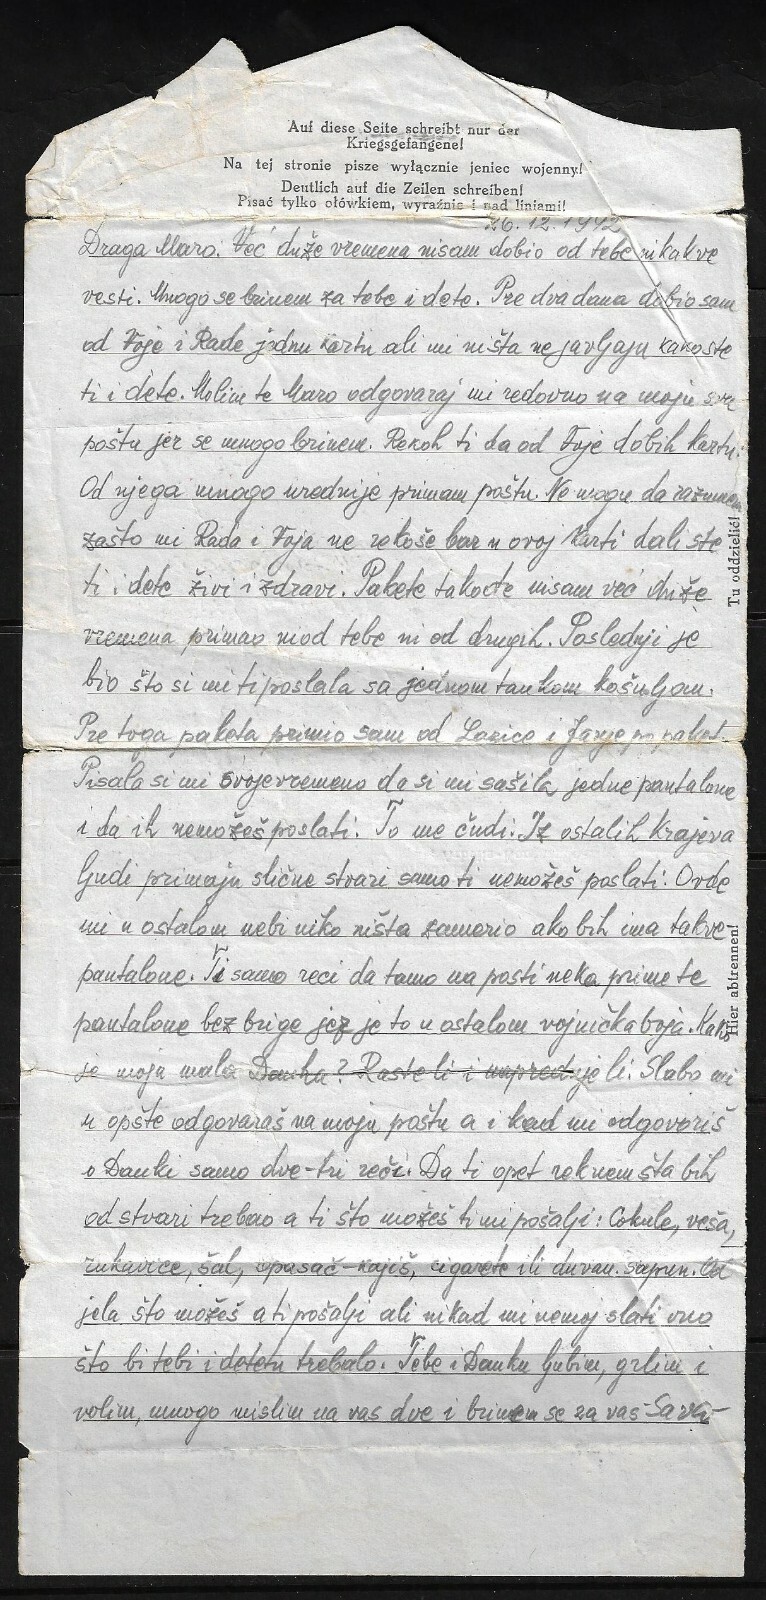 Auf diese Seite schreibt nur der
Kriegsgefangene!
Na tej stronie pisze wyłącznie jeniec wojenny!
Deutlich auf die Zeilen schreiben!
Pisać tylko ołówkiem, wyraźnie i nad liniami!
26.12.1942
Draga Maro. Već duže vremena nisam dobio od tebe nikakve
vesti. Mnogo se brinem za tebe i dete. Pre dva dana dobio sam
od Voje i Rade jednu kartu ali mi ništa ne javljaju kako ste
ti i dete. Molim te Maro odgovaraj mi redovno na moju svu
poštu jer se mnogo brinem. Rekoh ti da od Voje dobih kartu.
Od njega mnogo urednije primam poštu. Ne mogu da razumem
zašto mi Rada i Voja ne rekoše bar u ovoj karti dali ste
ti i dete živi i zdravi. Pakete takođe nisam već duže
vremena primao ni od tebe ni od drugih. Poslednji je
bio što si mi ti poslala sa jednom tankom košuljom.
Pre toga paketa primio sam od Lazice i po paket.
Pisala si mi svojevremeno da si mi sašila jedne pantalone
i da ih nemožeš poslati. To me čudi. Iz ostalih krajeva
ljudi primaju slične stvari samo ti nemožeš poslati. Ovde
mi u ostalom nebi niko ništa zamerio ako bih ima takve
pantalone. Ti samo reci da tamo na pošti neka prime te
pantalone bez brige jer je to u ostalom vojnička boja. Kako
je moja mala Danka? Raste li i napreduje li. Slabo mi
u opšte odgovaraš na moju poštu a i kad mi odgovoriš
o Danki samo dve-tri reči. Da ti opet reknem šta bih
od stvari trebao a ti što možeš ti mi pošalji: Cokule, veša,
rukavice, šal, opasač-kajiš, cigarete ili duvan. sapun. Od
jela što možeš a ti pošalji ali nikad mi nemoj slati ono
što bi tebi i detetu trebalo. Tebe i Danku ljubim, grlim i
volim, mnogo mislim na vas dve i brinem se za vas - Sava -
Tu oddzielić!
Hier abtrennen!